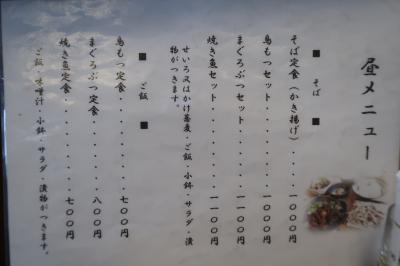 昼メニュー
■ そば ■
そば定食(かき揚げ)・・・一〇〇〇円
鳥もつセット・・・・・・・一〇〇〇円
まぐろぶつセット・・・・・一一〇〇円
焼き魚セット・・・・・・・一一〇〇円
せいろ又はかけ蕎麦・ご飯・小鉢・サラダ・漬
物がつきます。
■ ご飯 ■
鳥もつ定食・・・・・・・・七〇〇円
まぐろぶつ定食・・・・・・八〇〇円
焼き魚定食・・・・・・・・七〇〇円
ご飯・味噌汁・小鉢・サラダ・漬物がつきます。